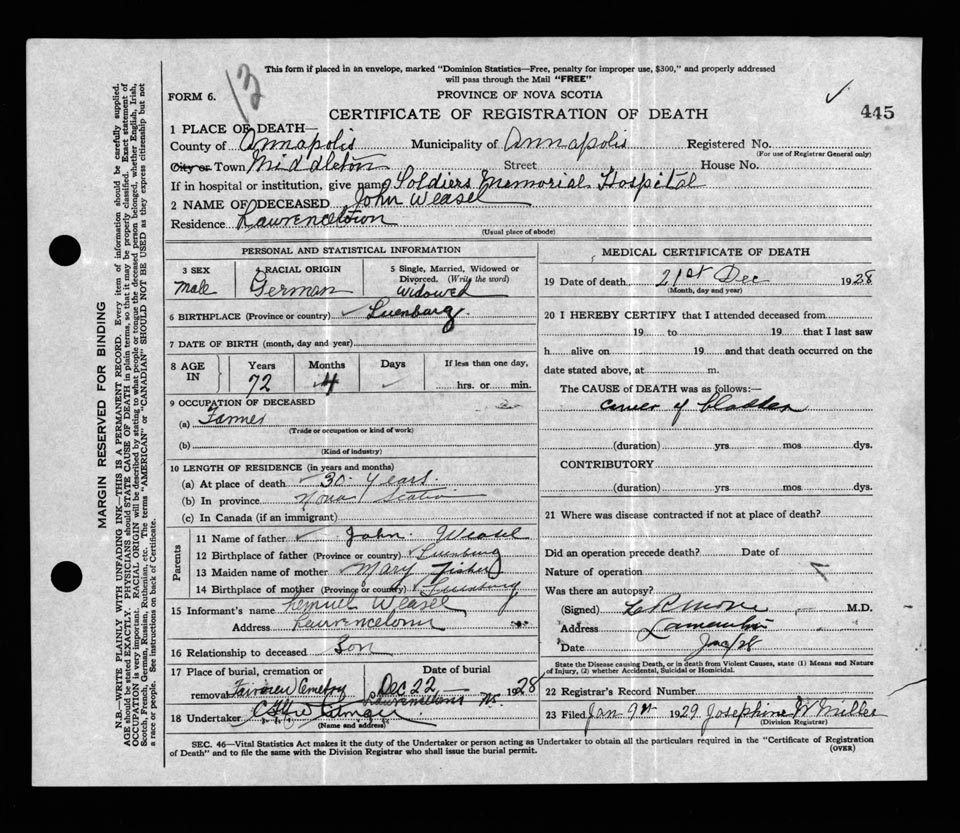 This form if placed in an envelope, marked "Dominion Statistics—Free, penalty for improper use, $300," and properly addressed
will pass through the Mail "FREE"
12
FORM 6.
PROVINCE OF NOVA SCOTIA
CERTIFICATE OF REGISTRATION OF DEATH
445
1 PLACE OF DEATH—
County of Annapolis Municipality of Annapolis Registered No.
(For use of Registrar General only)
City or Town Middleton Street House No.
If in hospital or institution, give name Soldiers Memorial Hospital
2 NAME OF DECEASED John Weasel
Residence Lawrencetown
(Usual place of abode)
PERSONAL AND STATISTICAL INFORMATION
3 SEX 4 RACIAL ORIGIN 5 Single, Married, Widowed or
Divorced. (Write the word)
Male German Widowed
6 BIRTHPLACE (Province or country) Luenburg
7 DATE OF BIRTH (month, day and year)
8 AGE IN Years Months Days If less than one day,
72 4 hrs. or min.
9 OCCUPATION OF DECEASED
(a) Farmer
(Trade or occupation or kind of work)
(b)
(Kind of industry)
10 LENGTH OF RESIDENCE (in years and months)
(a) At place of death 30 Years
(b) In province Nova Scotia
(c) In Canada (if an immigrant)
Parents
11 Name of father John Weasel
12 Birthplace of father (Province or country) Luenburg
13 Maiden name of mother Mary Fisher
14 Birthplace of mother (Province or country) Luenburg
15 Informant's name Lemuel Weasel
Address Lawrencetown
16 Relationship to deceased Son
17 Place of burial, cremation or removal Date of burial
Fairview Cemetery Dec 22 1928
Lawrencetown NS.
18 Undertaker
(Name and address)
MEDICAL CERTIFICATE OF DEATH
19 Date of death 21st Dec 1928
(Month, day and year)
20 I HEREBY CERTIFY that I attended deceased from
19 to 19 that I last saw
h alive on 19 and that death occurred on the
date stated above, at m.
The CAUSE of DEATH was as follows:—
Cancer of bladder
(duration) yrs mos dys.
CONTRIBUTORY
(duration) yrs mos dys.
21 Where was disease contracted if not at place of death?
Did an operation precede death? Date of
Nature of operation
Was there an autopsy?
(Signed) M.D.
Address
Date
State the Disease causing Death, or in death from Violent Causes, state (1) Means and Nature
of Injury, (2) whether Accidental, Suicidal or Homicidal.
22 Registrar's Record Number
23 Filed Jan 9th 1929 Josephine W Miller
(Division Registrar)
SEC. 46—Vital Statistics Act makes it the duty of the Undertaker or person acting as Undertaker to obtain all the particulars required in the "Certificate of Registration
of Death" and to file the same with the Division Registrar who shall issue the burial permit.
(OVER)
MARGIN RESERVED FOR BINDING
N.B.—WRITE PLAINLY WITH UNFADING INK—THIS IS A PERMANENT RECORD. Every item of information should be carefully supplied.
AGE should be stated EXACTLY. PHYSICIANS should STATE CAUSE OF DEATH in plain terms, so that it may be properly classified. Exact statement of
OCCUPATION is very important. RACIAL ORIGIN will be described by stating to what people or tongue the deceased person belonged, whether English, Irish,
Scotch, French, German, Russian, Ruthenian, etc. The terms "AMERICAN" or "CANADIAN" SHOULD NOT BE USED as they express citizenship but not
a race or people. See instructions on back of Certificate.